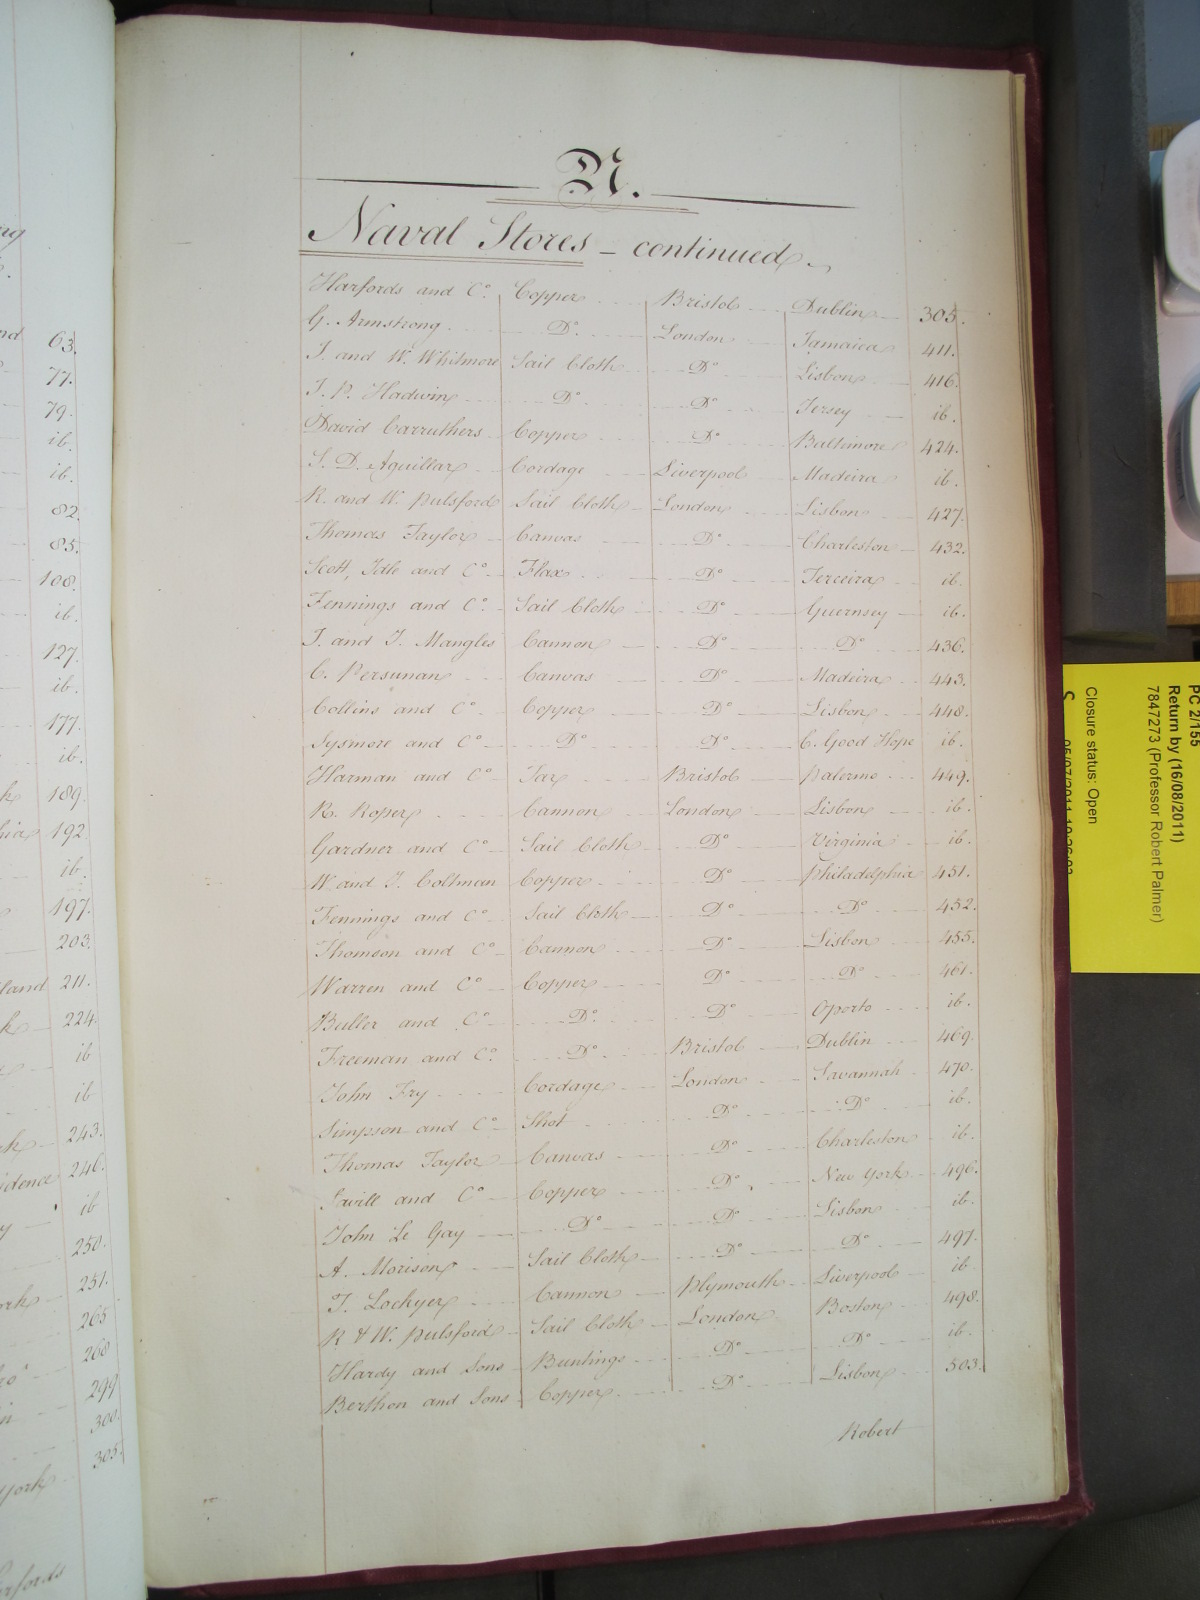 N.
Naval Stores – continued.
Harfords and Co. Copper Bristol Dublin 305.
G. Armstrong Do. London Jamaica 411.
J. and W. Whitmore Sail Cloth Do Lisbon 416.
J. P. Hadwin Do. Do. Jersey ib.
David Carruthers Copper Do Baltimore 424.
S. D. Aguillar Cordage Liverpool Madeira ib.
R. and W. Pulsford Sail Cloth London Lisbon 427.
Thomas Taylor Canvas Do Charleston 432.
Scott, Idle and Co. Flax Do Terceira ib.
Jennings and Co. Sail Cloth Do Guernsey ib.
J. and J. Mangles Cannon Do Do 436.
C. Canvas Do Madeira 443.
Collins and Co. Copper Do Lisbon 448.
and Co Do Do C. Good Hope ib.
Harman and Co Tar Bristol Palermo 449.
R. Roper Cannon London Lisbon ib.
Gardner and Co Sail Cloth Do Virginia ib.
W. and J. Coltman Copper Do Philadelphia 451.
Jennings and Co Sail Cloth Do Do 452.
Thomson and Co Cannon Do Lisbon 455.
Warren and Co Copper Do Do 461.
Buller and Co Do. Do Oporto ib.
Freeman and Co. Do Bristol Dublin 469.
John Fry Cordage London Savannah 470.
Simpson and Co Shot Do Do ib.
Thomas Taylor Canvas Do Charleston ib.
Savill and Co Copper Do New York 496.
John Le Gay Do Do Lisbon ib.
A. Morison Sail Cloth Do Do 497.
T. Lockyer Cannon Plymouth Liverpool ib
R & W. Pulsford Sail Cloth London Boston 498.
Hardy and Sons Buntings Do Do ib.
Berthon and Sons Copper Do Lisbon 503.
Robert
63.
77.
79.
ib.
ib.
82.
85.
108.
ib.
127.
ib.
177.
ib.
189.
192.
ib.
197.
203.
211.
224.
ib
ib
243.
246.
ib
250.
251.
265
268
299
300.
305.
PC 2/155
Return by (16/08/2011)
7847273 (Professor Robert Palmer)
Closure status: Open